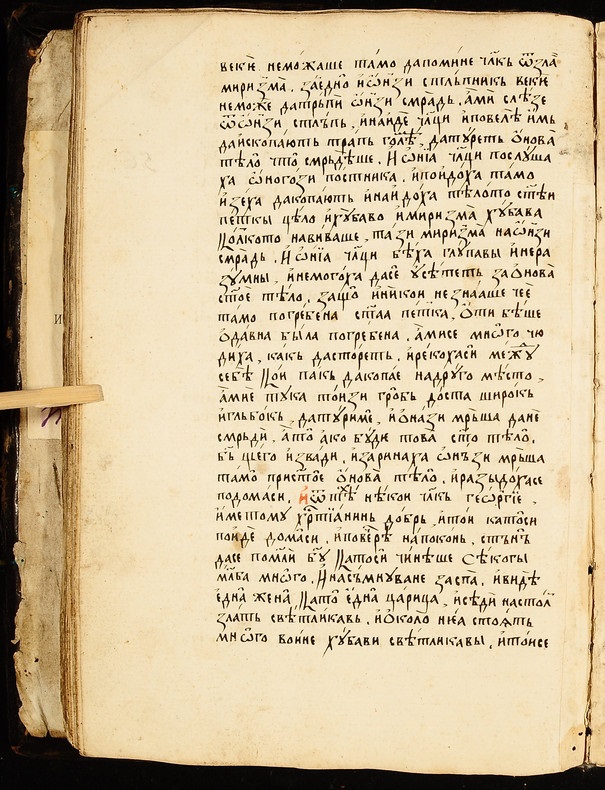 векїе неможаше тамо дапомине члк҃ь ѿзла
миризма̀. заедно̀ иѡнзи стльпникь векїе
неможе датрьпи ѡнзи смрадь. а̀ми слѣзе
ѿѡнзи стльпь, инайде члц҃и иповелѣ имь
даископають трапь големь, датуреть онова
тѣло̀ что̀ смрьдѣше. И ѡнїа члц҃и послуша
ха ѡногози постника. ипойдоха тамо
изеха дакопають инайдоха тѣлото ст҃ѣи
петкы цѣло ихубаво имиризма хубава
Цолкото навиваше, тази миризма наѡнзи
смрадь. И ѡнїа члц҃и бѣха глупавы инера
зумны, инемогоха дасе усѣтеть заѡнова
ст҃ое тѣло. защо̀ иникои незнааше чее
тамо погребена ст҃аа петка. ѿти бѣше
ѡдавна была погребена. а̀мисе много чю
диха, какь дасторетъ. ирекохаси межꙋ
себѣ Цои пакь дакопае надруго мѣсто,
а̀мие тука тоизи гробь доста широкь
игльбокь. датуриме, иѡнази мрьша дане
смрьди. а̀то̀ ако буде това ст҃о тѣло.
бг҃ь щего извади. изаринаха ѡньзи мрьша
тамо прист҃ое онова тѣло. иразыдохасе
подомаси. иѿтуѐ нѣкои члк҃ь геѡргїе,
именому хрс҃тїанинь добрь. итои катоси
пойде домаси. иповерѐ напоконь. стрьнь
дасе помоли бг҃у Цатоси чинѣше Секогы
млт҃ва много. Инасьмнуване заспа. ивидѣ
една жена. Цато една царица, иседи настоль
злать свѣтликавь. иѡколо неа стоять
много воине хубави свѣтликавы. итоисе